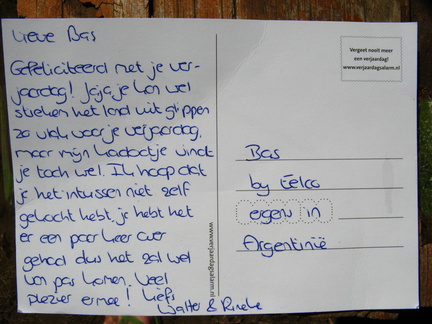 Lieve Bas
Gefeliciteerd met je ver-
jaardag! Jaja je kan wel
stiekem het land uit glippen
zo vlak voor je verjaardag,
maar mijn kadootje vindt
je toch wel. Ik hoop dat
je het intussen niet zelf
gekocht hebt, je hebt het
er een paar keer over
gehad dus het zal wel
van pas komen. Veel
plezier ermee! Liefs
Walter & Rineke
www.verjaardagsalarm.nl
Vergeet nooit meer
een verjaardag!
www.verjaardagsalarm.nl
Bas
by Eelco
ergens in
Argentinië